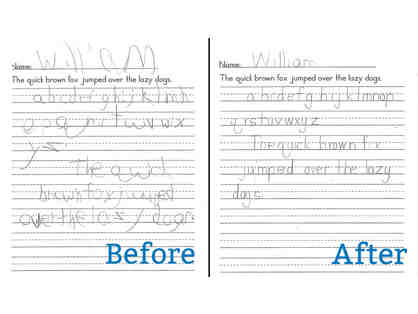 Name: William
The quick brown fox jumped over the lazy dogs.
a b c d e f g h i j k l m n
o p q n r t w v w x
y z
The quick
brown fox jumped
over the lazy dogs
Before
Name: William
The quick brown fox jumped over the lazy dogs.
a b c d e f g h i j k l m n o p
q r s t u v w x y z
The quick brown fox
jumped over the lazy
dogs
After